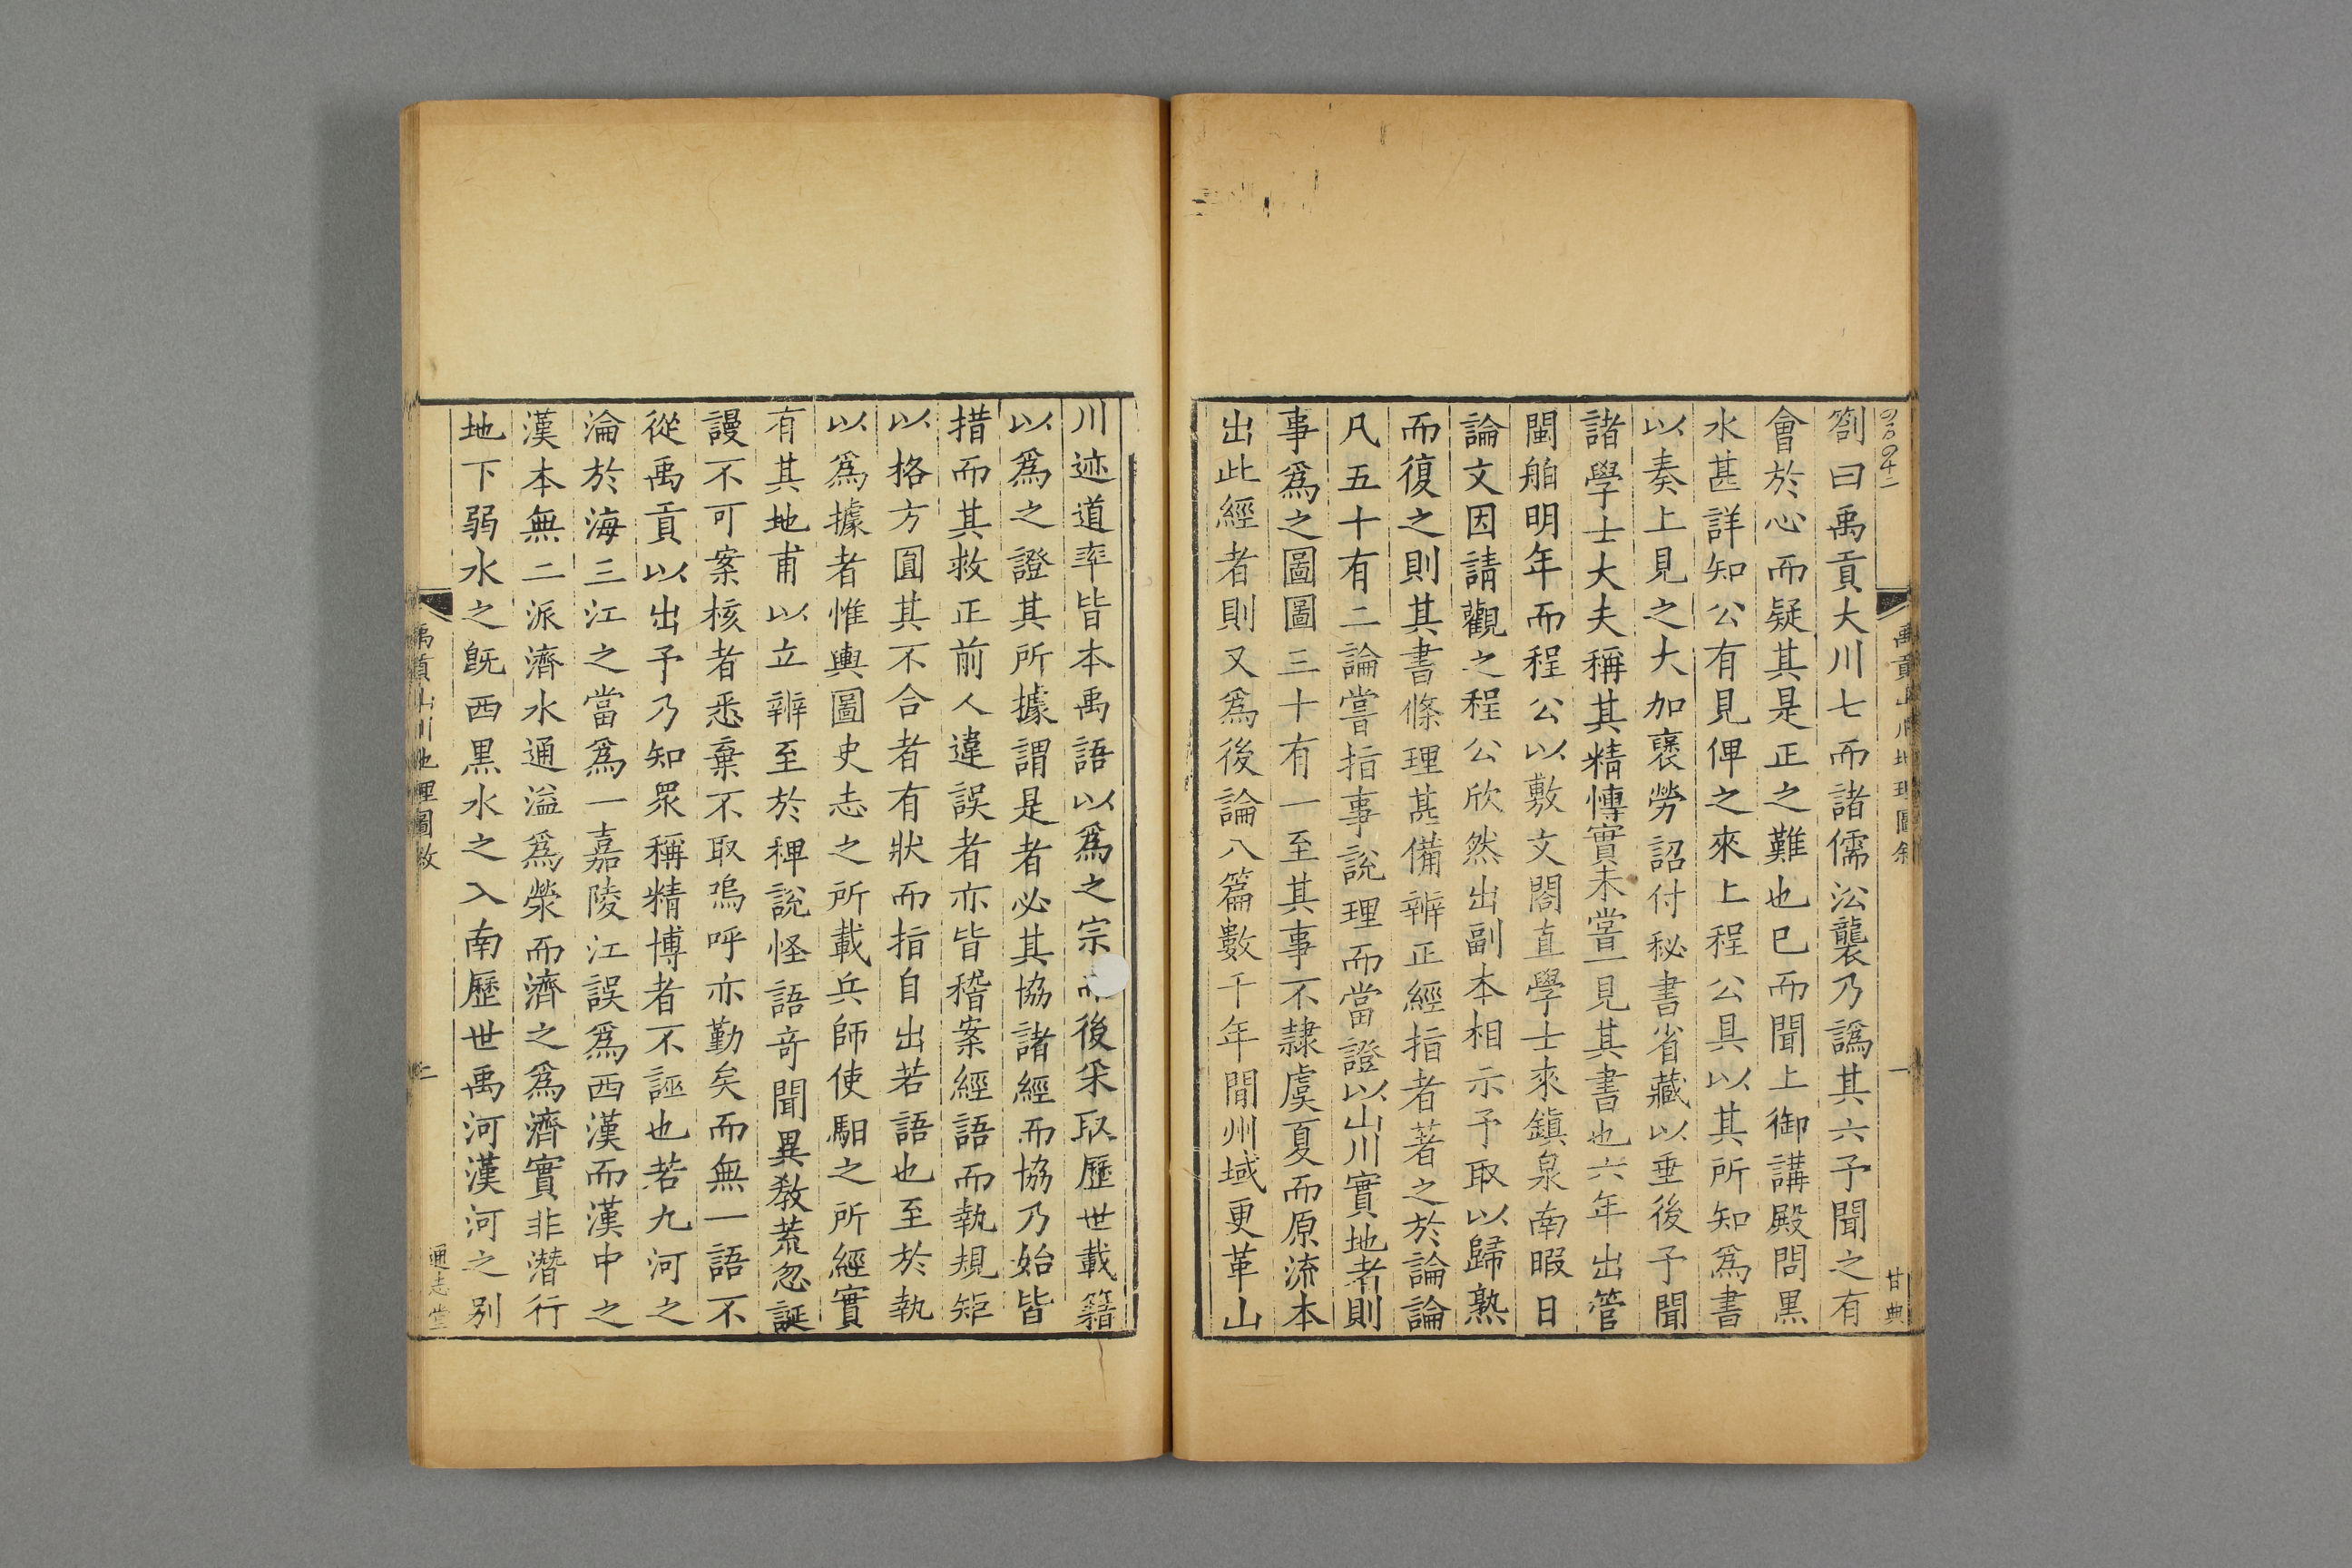 劄曰禹貢大川七而諸儒㳂襲乃譌其六予聞之有
會於心而疑其是正之難也巳而聞上御講殿問黒
水甚詳知公有見俾之來上程公具以其所知爲書
以奏上見之大加襃勞詔付秘書省藏以垂後予聞
諸學士大夫稱其精愽實未嘗一見其書也六年出管
閩舶明年而程公以敷文閣直學士來鎭泉南暇日
論文因請觀之程公欣然出副本相示予取以歸熟
而復之則其書條理甚備辨正經指者著之於論論
凡五十有二論嘗指事說理而當證以山川實地者則
事爲之圖圖三十有一至其事不隷虞夏而原流本
出此經者則又爲後論八篇數千年間州域更革山
甘典
川迹道率皆本禹語以爲之宗而後采取歷世載籍
以爲之證其所據謂是者必其協諸經而協乃始皆
措而其救正前人違誤者亦皆稽案經語而執規矩
以格方圓其不合者有狀而指自出若語也至於執
以爲據者惟輿圖史志之所載兵師使馹之所經實
有其地甫以立辨至於稗說怪語竒聞異敎荒忽誕
謾不可案核者悉棄不取嗚呼亦勤矣而無一語不
從禹貢以出予乃知衆稱精博者不誣也若九河之
淪於海三江之當爲一嘉陵江誤爲西漢而漢中之
漢本無二派濟水通溢爲滎而濟之爲濟實非潛行
地下弱水之旣西黒水之入南歷世禹河漢河之别
禹貢山川地理圖敘
二
通志堂